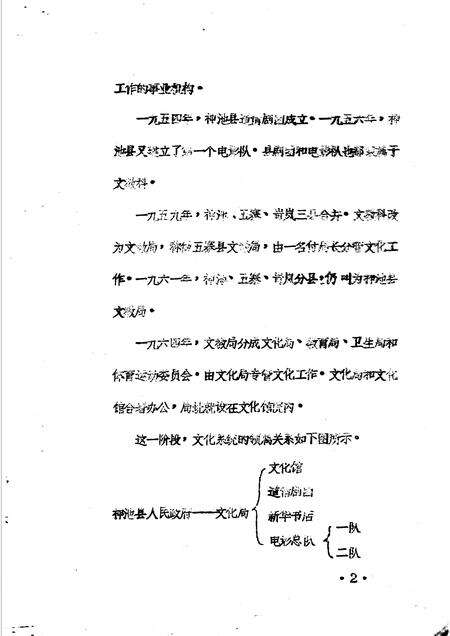 工作的事业机构。
一九五四年，神池县道情剧团成立。一九五六年，神
池县又建立了第一个电影队。县剧团和电影队也都隶属于
文教科。
一九五九年，神池、五寨、岢岚三县合并。文教科改
为文教局，称五寨县文教局，由一名付局长分管文化工
作。一九六一年，神池、五寨、岢岚分县，仍叫为神池县
文教局。
一九六四年，文教局分成文化局、教育局、卫生局和
体育运动委员会。由文化局专管文化工作。文化局和文化
馆合署办公，局址就设在文化馆院内。
这一阶段，文化系统的领属关系如下图所示。
文化馆
道情剧团
神池县人民政府——文化局
新华书店
电影总队
一队
二队
·2·